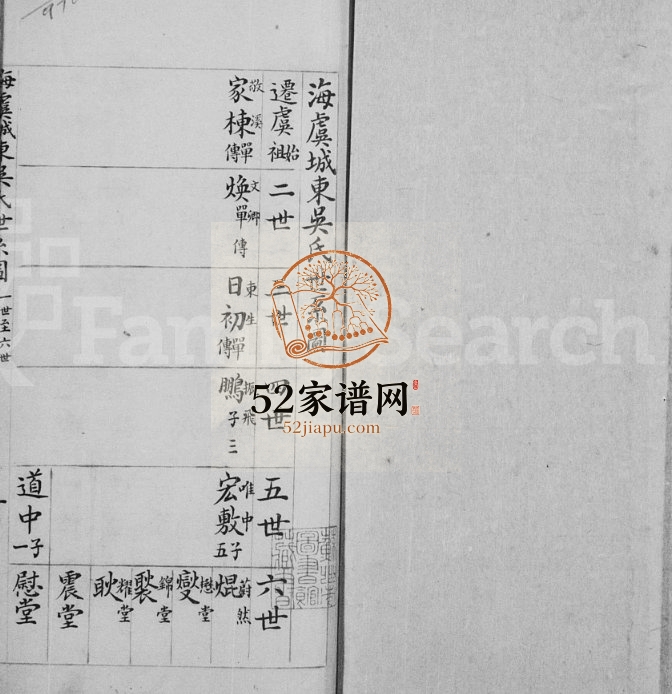 海虞城東吳氏世系圖
遷虞始祖
敬溪
家棟單傳
二世
文卿
煥單傳
三世
東生
日初單傳
四世
振飛
鵬子三
五世
唯中
宏敷子五
道中子一
六世
蔚然
焜
懋堂
燮
錦堂
耀堂
耿
震堂
慰堂
海虞城東吳氏世系圖 一世至六世
52家谱网
52jiapu.com
Search